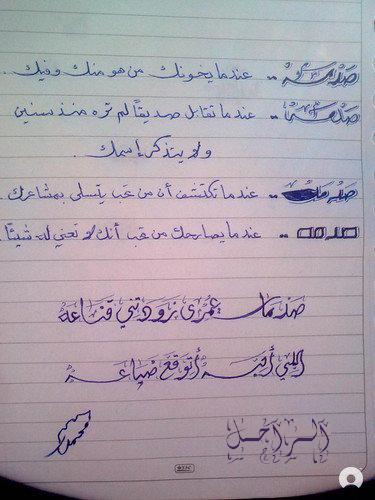 صدمه .. عندما يخونك من هو منك وفيك .
صدمه .. عندما تقابل صديقاً لم تره منذ سنين
ولا يتذكر إسمك .
صدمه .. عندما تكتشف أن من تحب يتسلى بمشاعرك .
صدمه .. عندما يصارحك من تحب أنك لا تعني له شيئاً .
صدمات عمري زودتني قناعة
اللي أحبه أتوقع ضياعه
الراحل